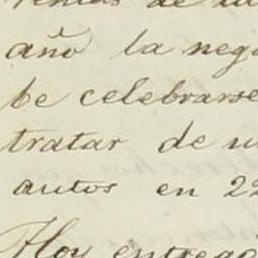 de la
año la neg
be celebrarse
tratar de u
autos en 22
Hoy entreg